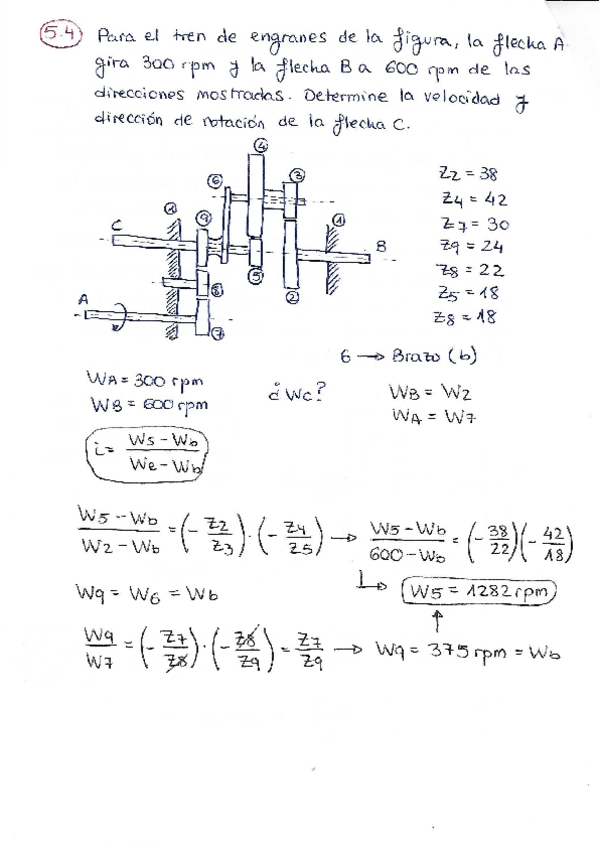 5.4 Para el tren de engranes de la figura, la flecha A
gira 300 rpm y la flecha B a 600 rpm de las
direcciones mostradas. Determine la velocidad y
dirección de rotación de la flecha C.
4
6 3
1 1
C 9 B
5
8 2
A 7
Z2 = 38
Z4 = 42
Z7 = 30
Z9 = 24
Z8 = 22
Z5 = 18
Z8 = 18
6 → Brazo (b)
WA = 300 rpm
WB = 600 rpm
¿WC?
WB = W2
WA = W7
i = (W5 - Wb) / (We - Wb)
(W5 - Wb) / (W2 - Wb) = (- Z2 / Z3) · (- Z4 / Z5) → (W5 - Wb) / (600 - Wb) = (- 38 / 22)(- 42 / 18)
↳ W5 = 1282 rpm
W9 = W6 = Wb
W9 / W7 = (- Z7 / Z8) · (- Z8 / Z9) = Z7 / Z9 → W9 = 375 rpm = Wb